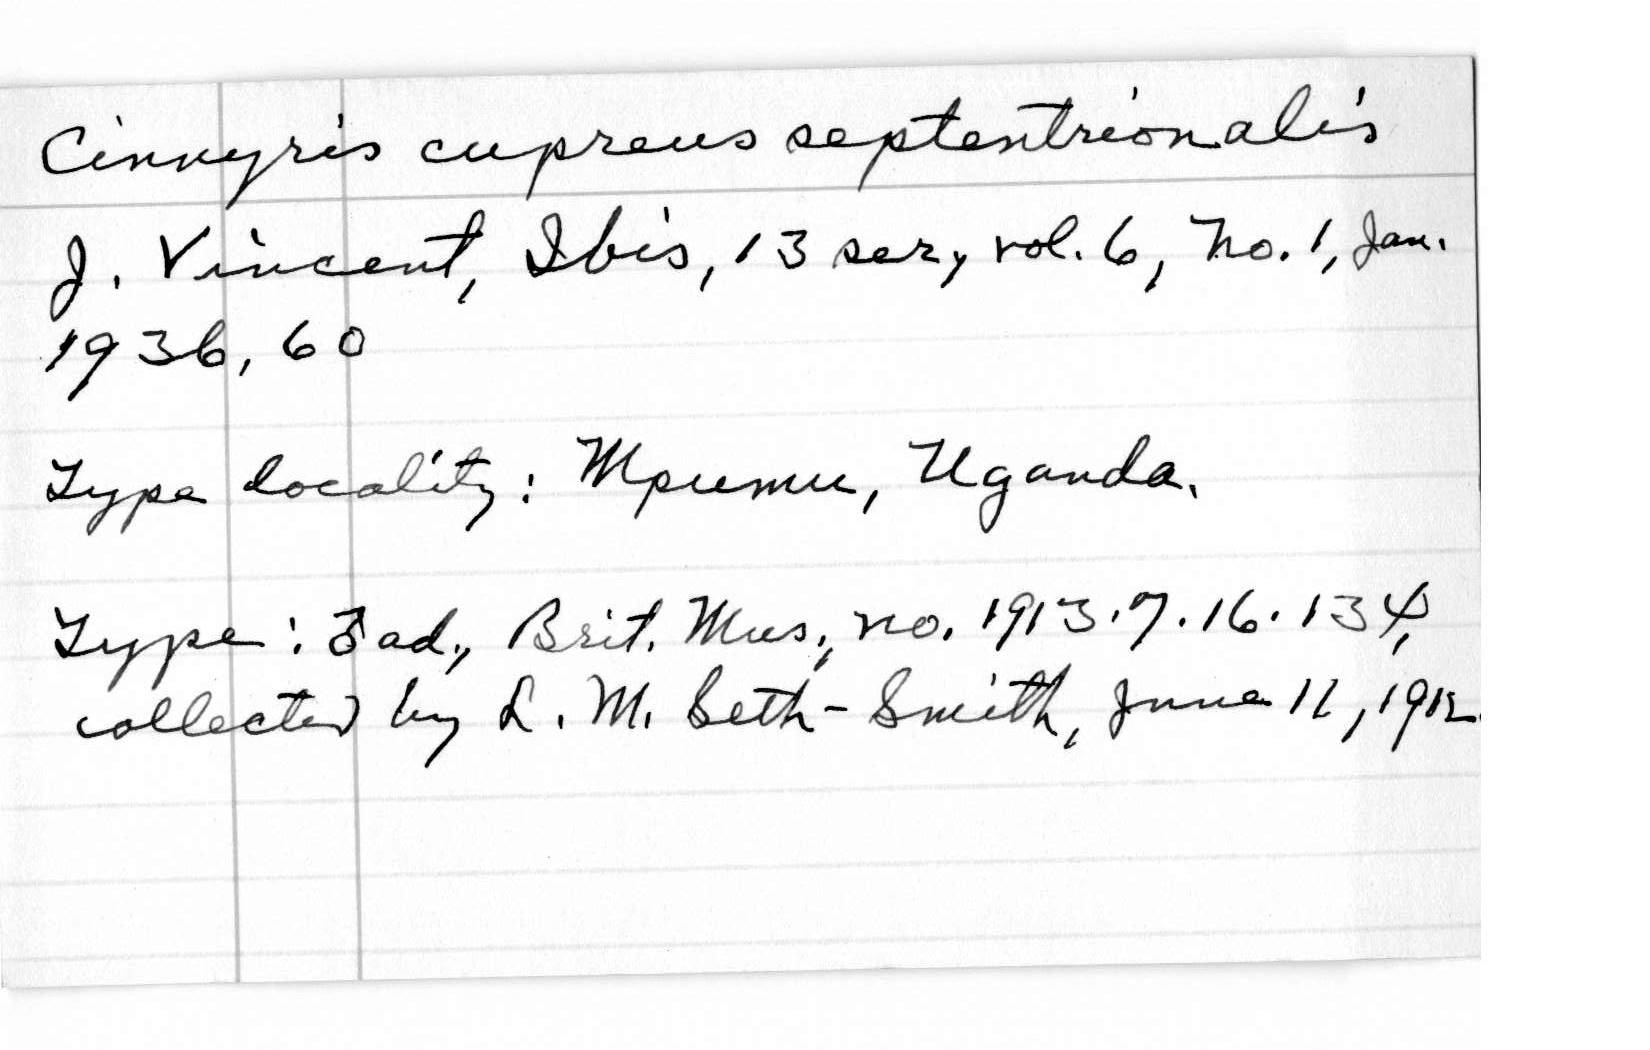 Cinnyris cupreus septentrionalis
J. Vincent, Ibis, 13 ser, vol. 6, no. 1, Jan.
1936, 60
Type locality: Mpumu, Uganda.
Type: ad., Brit. Mus., no. 1913.7.16.134,
collected by L. M. Seth-Smith, June 11, 1912.